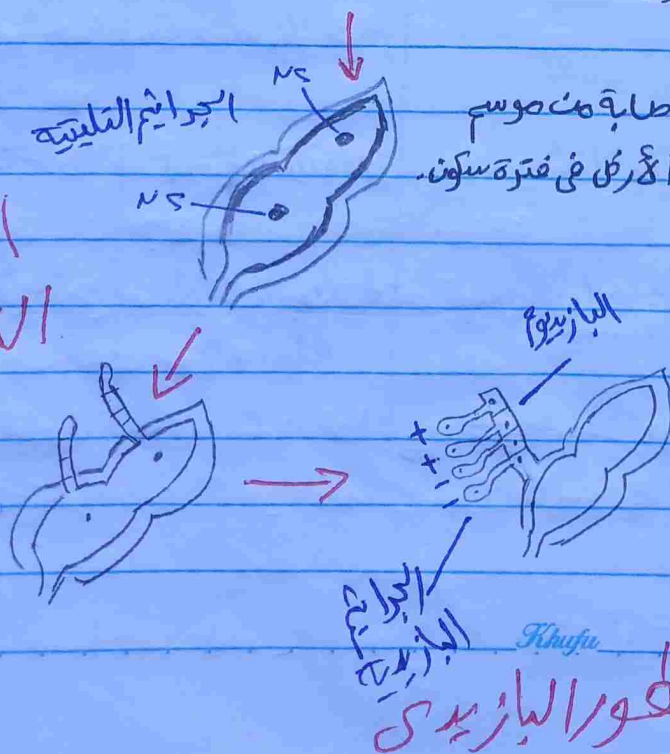 الجراثيم التليتية
2N
2N
صابة من موسم
الأرض في فترة سكون.
البازيديوم
+
+
-
-
الجراثيم
البازيدية
Khufu
طور البازيدى